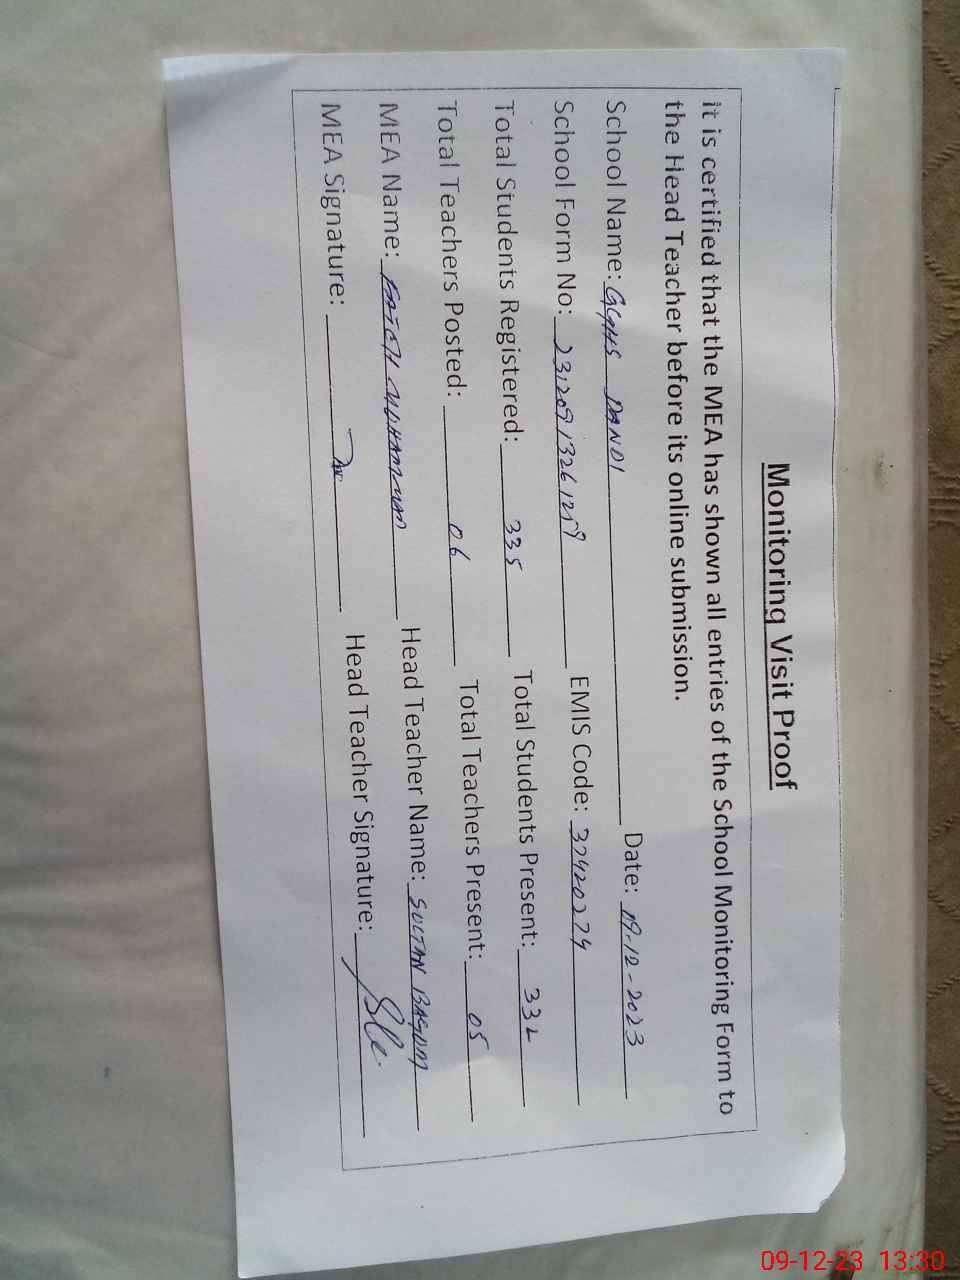 Monitoring Visit Proof
it is certified that the MEA has shown all entries of the School Monitoring Form to
the Head Teacher before its online submission.
School Name: GGHS DANDI Date: 09-12-2023
School Form No: EMIS Code: 37420274
Total Students Registered: 335 Total Students Present: 332
Total Teachers Posted: 06 Total Teachers Present: 05
MEA Name: FATEH MUHAMMAD Head Teacher Name: SULTAN
MEA Signature: Head Teacher Signature:
09-12-23 13:30